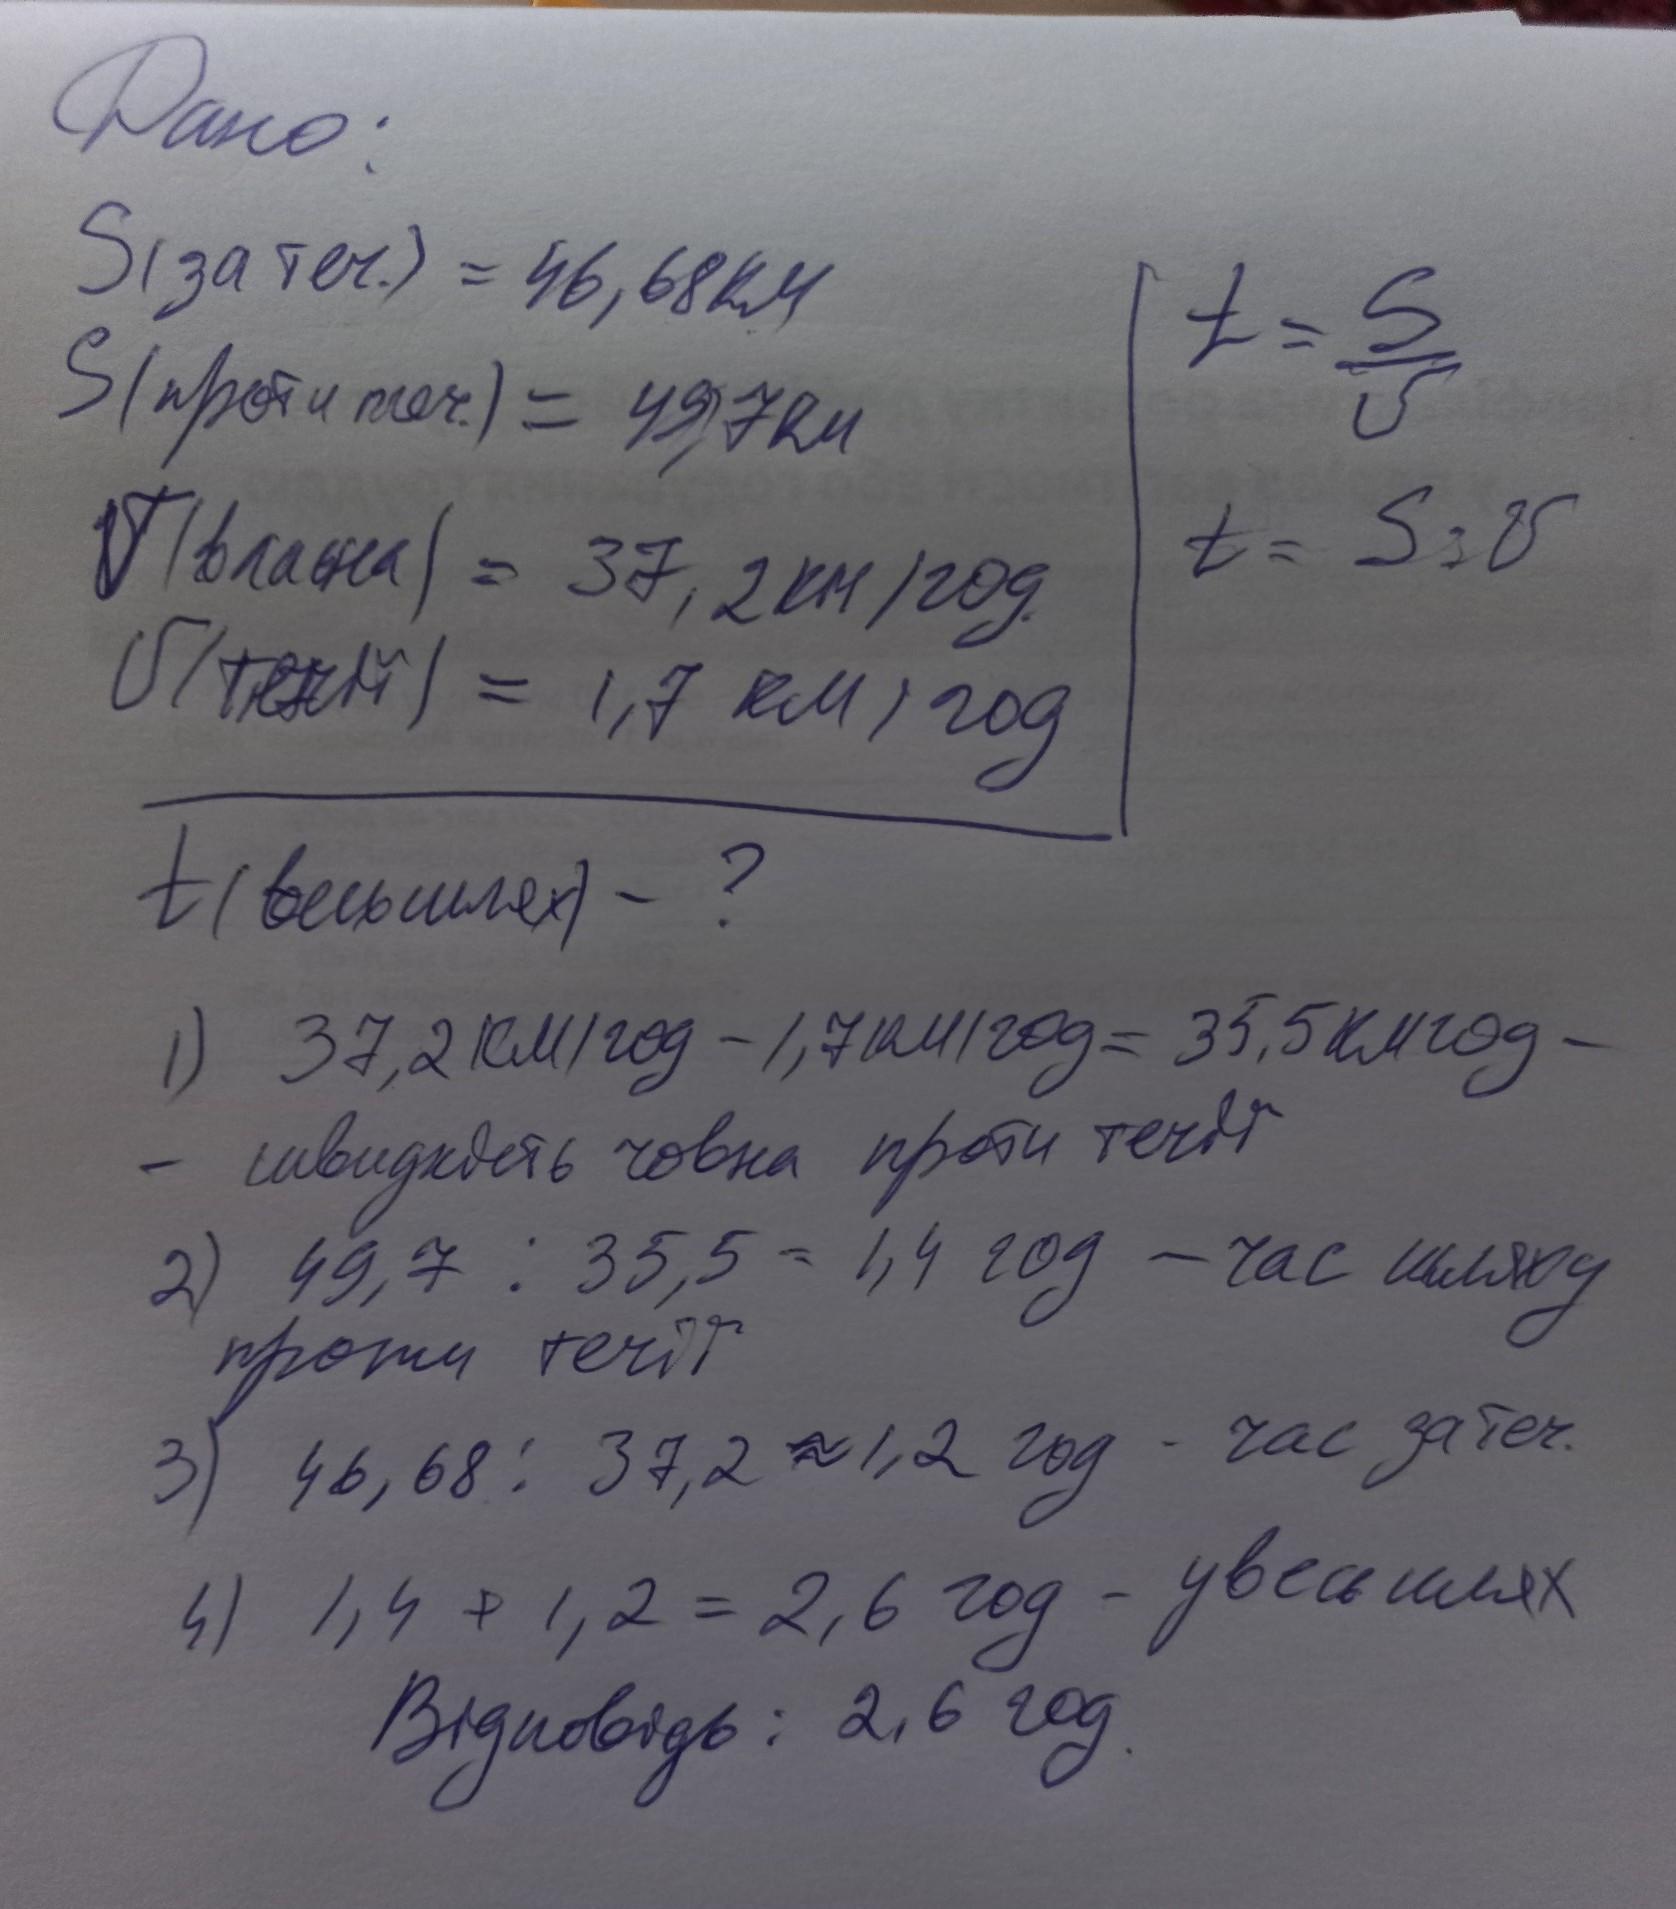 Дано:
S(за теч.) = 46,68км
S(проти теч.) = 49,7км
V(власна) = 37,2км/год.
V(течії) = 1,7 км/год
t = S/V
t = S:V
t(весь шлях) - ?
1) 37,2км/год - 1,7км/год = 35,5кмгод -
- швидкість човна проти течії
2) 49,7 : 35,5 = 1,4 год - час шляху
проти течії
3) 46,68 : 37,2 ≈ 1,2 год - час за теч.
4) 1,4 + 1,2 = 2,6 год - увесь шлях
Відповідь: 2,6 год.